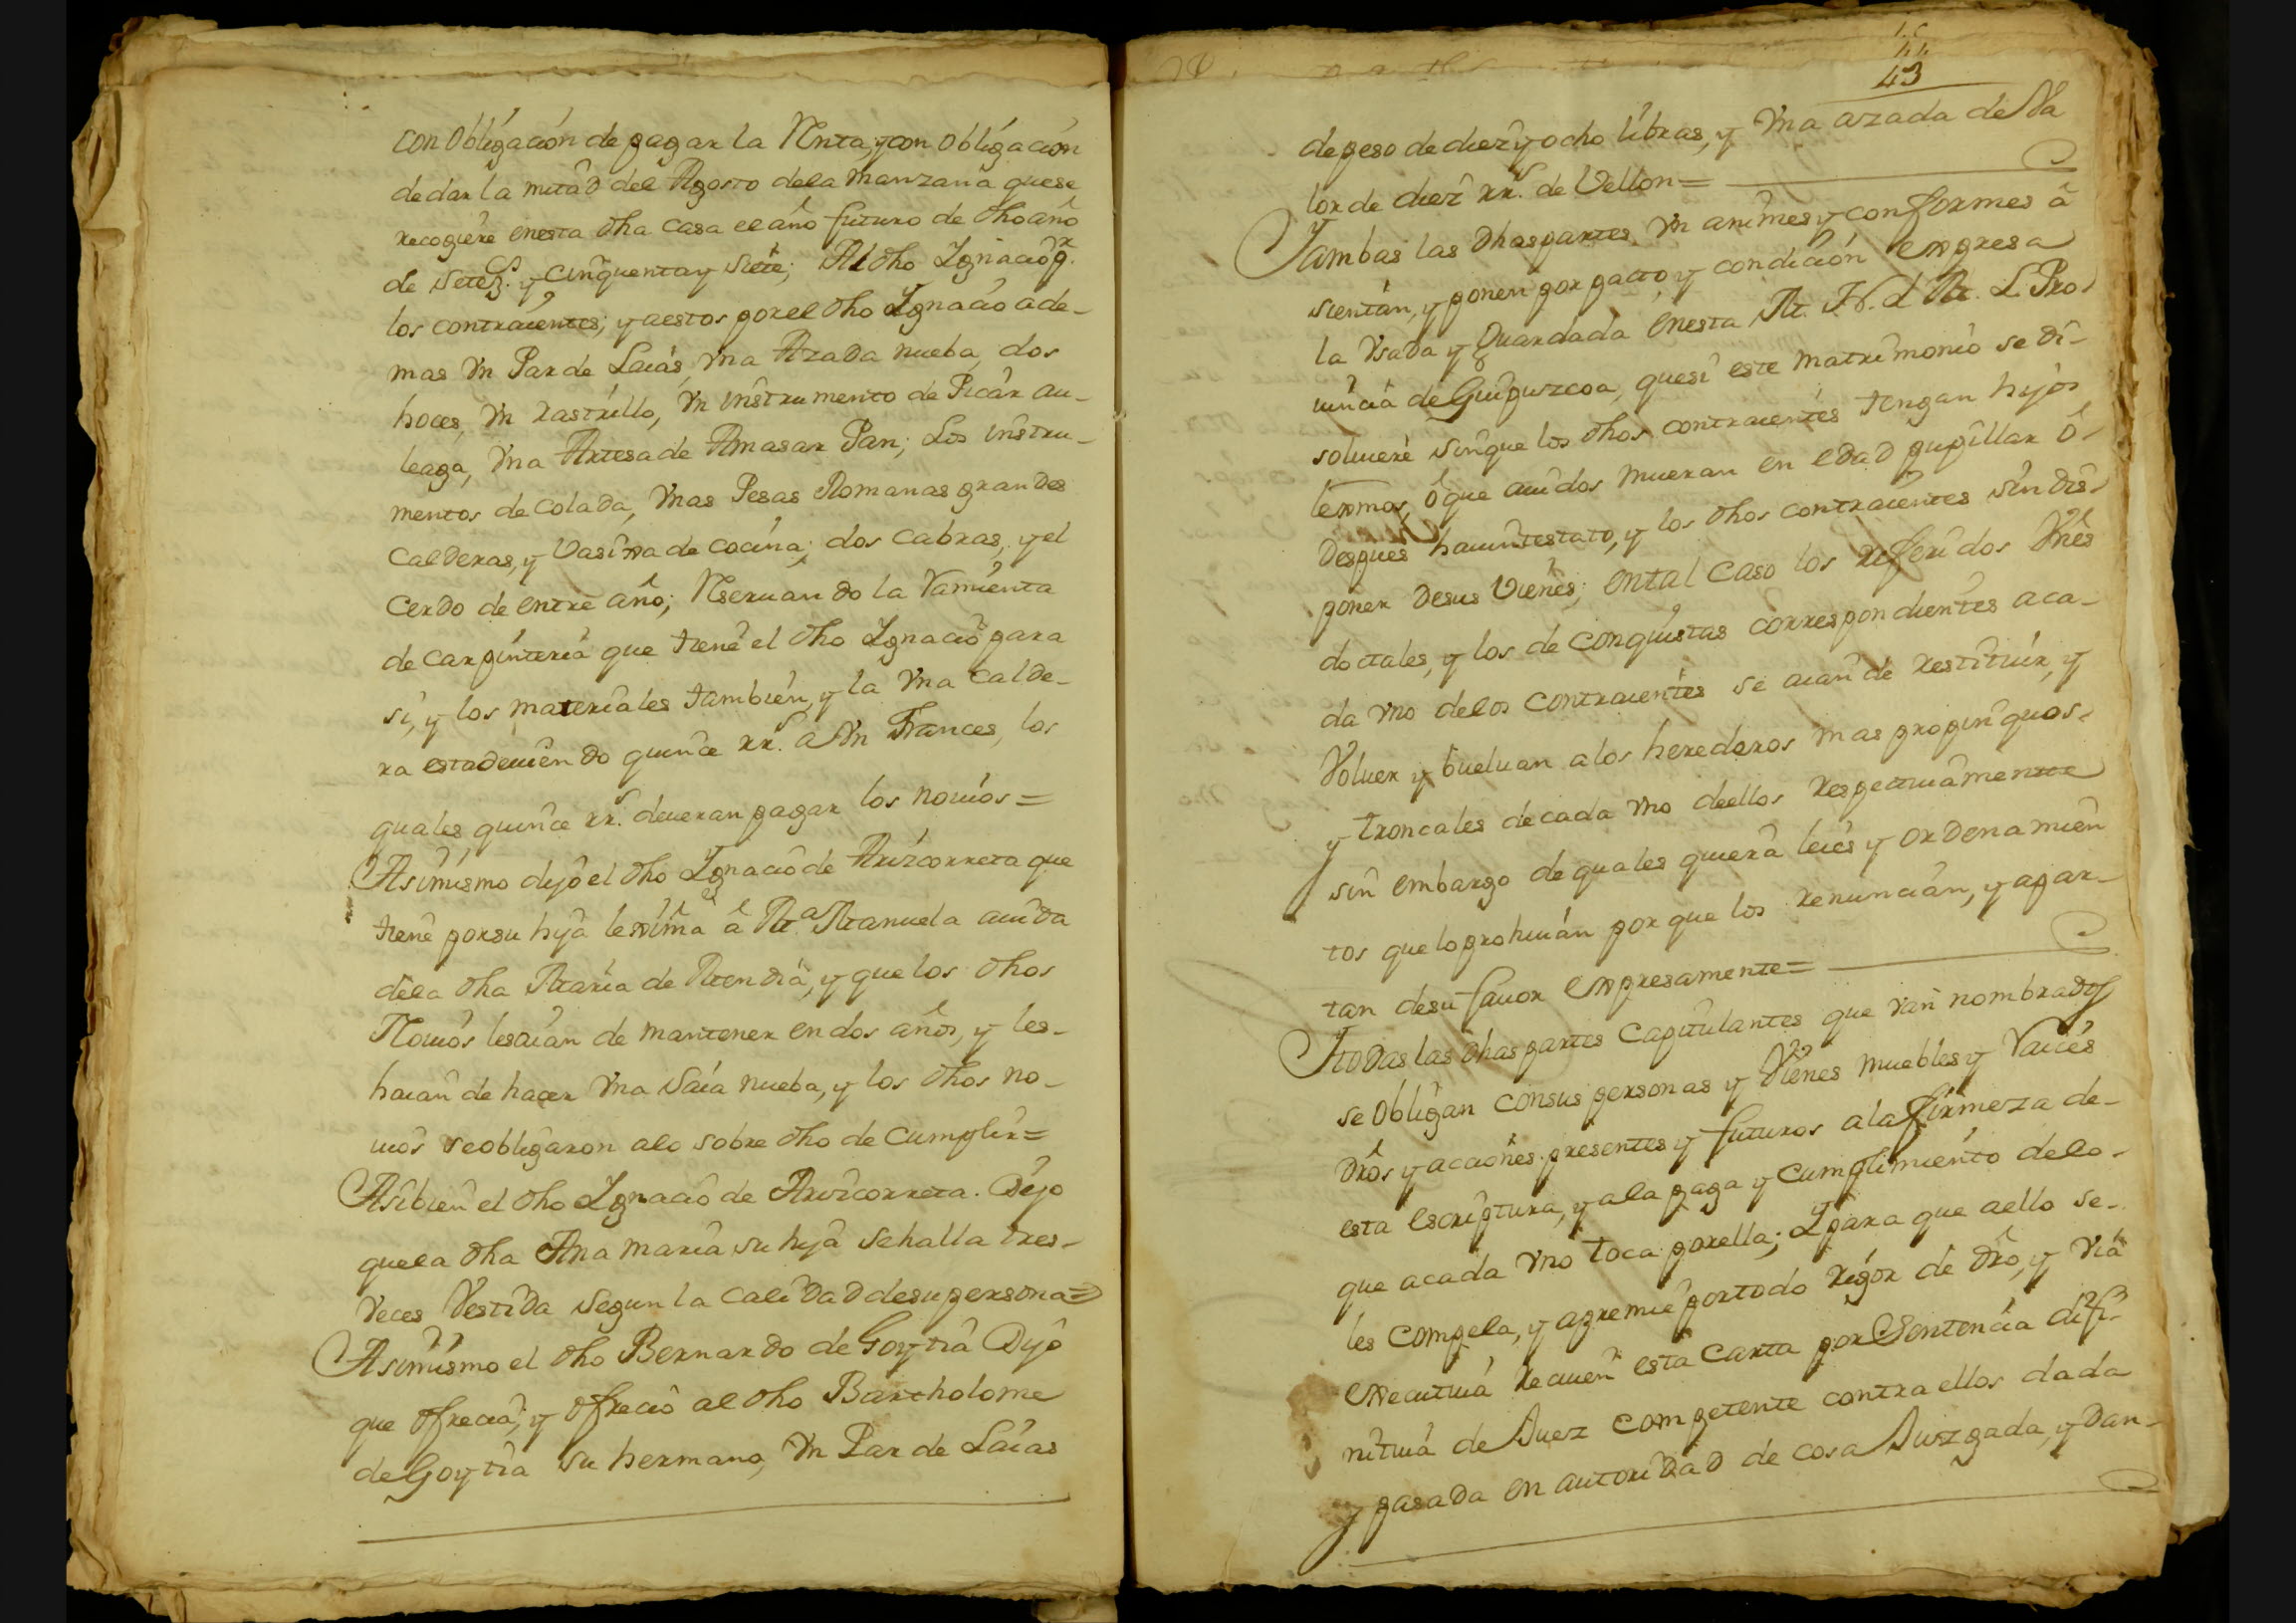 con obligación de pagar la Renta, y con obligación
de dar la mitad del Agosto dela manzana quese
recogiere enesta dha casa el año futuro de dho año
de Setez.s y cinquenta y siete; Al dho Ignacio p.r
los contraientes; y aestos porel dho Ignacio ade-
mas Vn Par de Laias, Vna Azada nueba, dos
hoces, Vn rastrillo, Vn instrumento de Picar au-
leaga, Vna Artesa de Amasar Pan; Los instru-
mentos de colada, Vnas Pesas Romanas grandes
Calderas, y Vasixa de cocina; dos cabras, y el
Cerdo de entre año; Reseruando la Ramienta
de carpinteria que tiene el dho Ignacio para
si, y los materiales tambien, y la Vna Calde-
ra esta deuiendo quince rr.s a Vn Frances, los
quales quince rr.s deueran pagar los nouios=
Asimismo dijo el dho Ignacio de Arizcorreta que
tiene porsu hija lexitima â M.a Manuela auida
dela dha Maria de Mendia, y quelos dhos
Nouios lesaian de mantener en dos años, y les-
haian de hacer Vna Saia nueba, y los dhos no-
uios se obligaron alo sobre dho de cumplir=
Asibien el dho Ignacio de Arizcorreta. Dijo
quela dha Ana maria su hija sehalla tres-
Veces Vestida segun la calidad desu persona=
Asimismo el dho Bernardo de Goytia Dijo
que ofrecia, y ofrecio al dho Bartholome
de Goytia su hermano, Vn Par de Laias
43
depeso de diez y ocho libras, y Vna azada de Va
lor de diez rr.s de Vellon=
Jambas las dhas partes Vn animes y conformes â
sientan, y ponen por pacto y condicion expresa
la Vsada y Guardada enesta M. N. L M. L. Pro-
uincia de Guipuzcoa, quesi este matrimonio se di-
soluiere sinque los dhos contraientes tengan hijos
lexmos, ô que auidos mueran en edad pupillar ô-
despues hauintestato, y los dhos contraientes sin dis-
poner desus Vienes; ental caso los referidos Vnes
doctales, y los de conquistas correspondientes aca-
da vno delos contraientes se aian de restituir, y
Voluer y bueluan alos herederos mas propinquos-
y troncales decada vno deellos respectiuamente
sin embargo de quales quiera leies y ordenamien
tos que lo prohiuan por que los renuncian, y apar-
tan desu fauor expresamente=
Jtodas las dhas partes Capitulantes que van nombrados
se obligan consus personas y Vienes muebles y Raices
drôs y acciones presentes y futuros ala firmeza de-
esta escriptura, y ala paga y cumplimiento delo-
que acada vno toca porella; Y para que aello se-
les compela, y apremie portodo rigor de drô, y via
executiua reciuen esta carta por Sentencia difi-
nitiua de Juez competente contra ellos dada
y pasada en autoridad de cosa Juzgada, y dan-